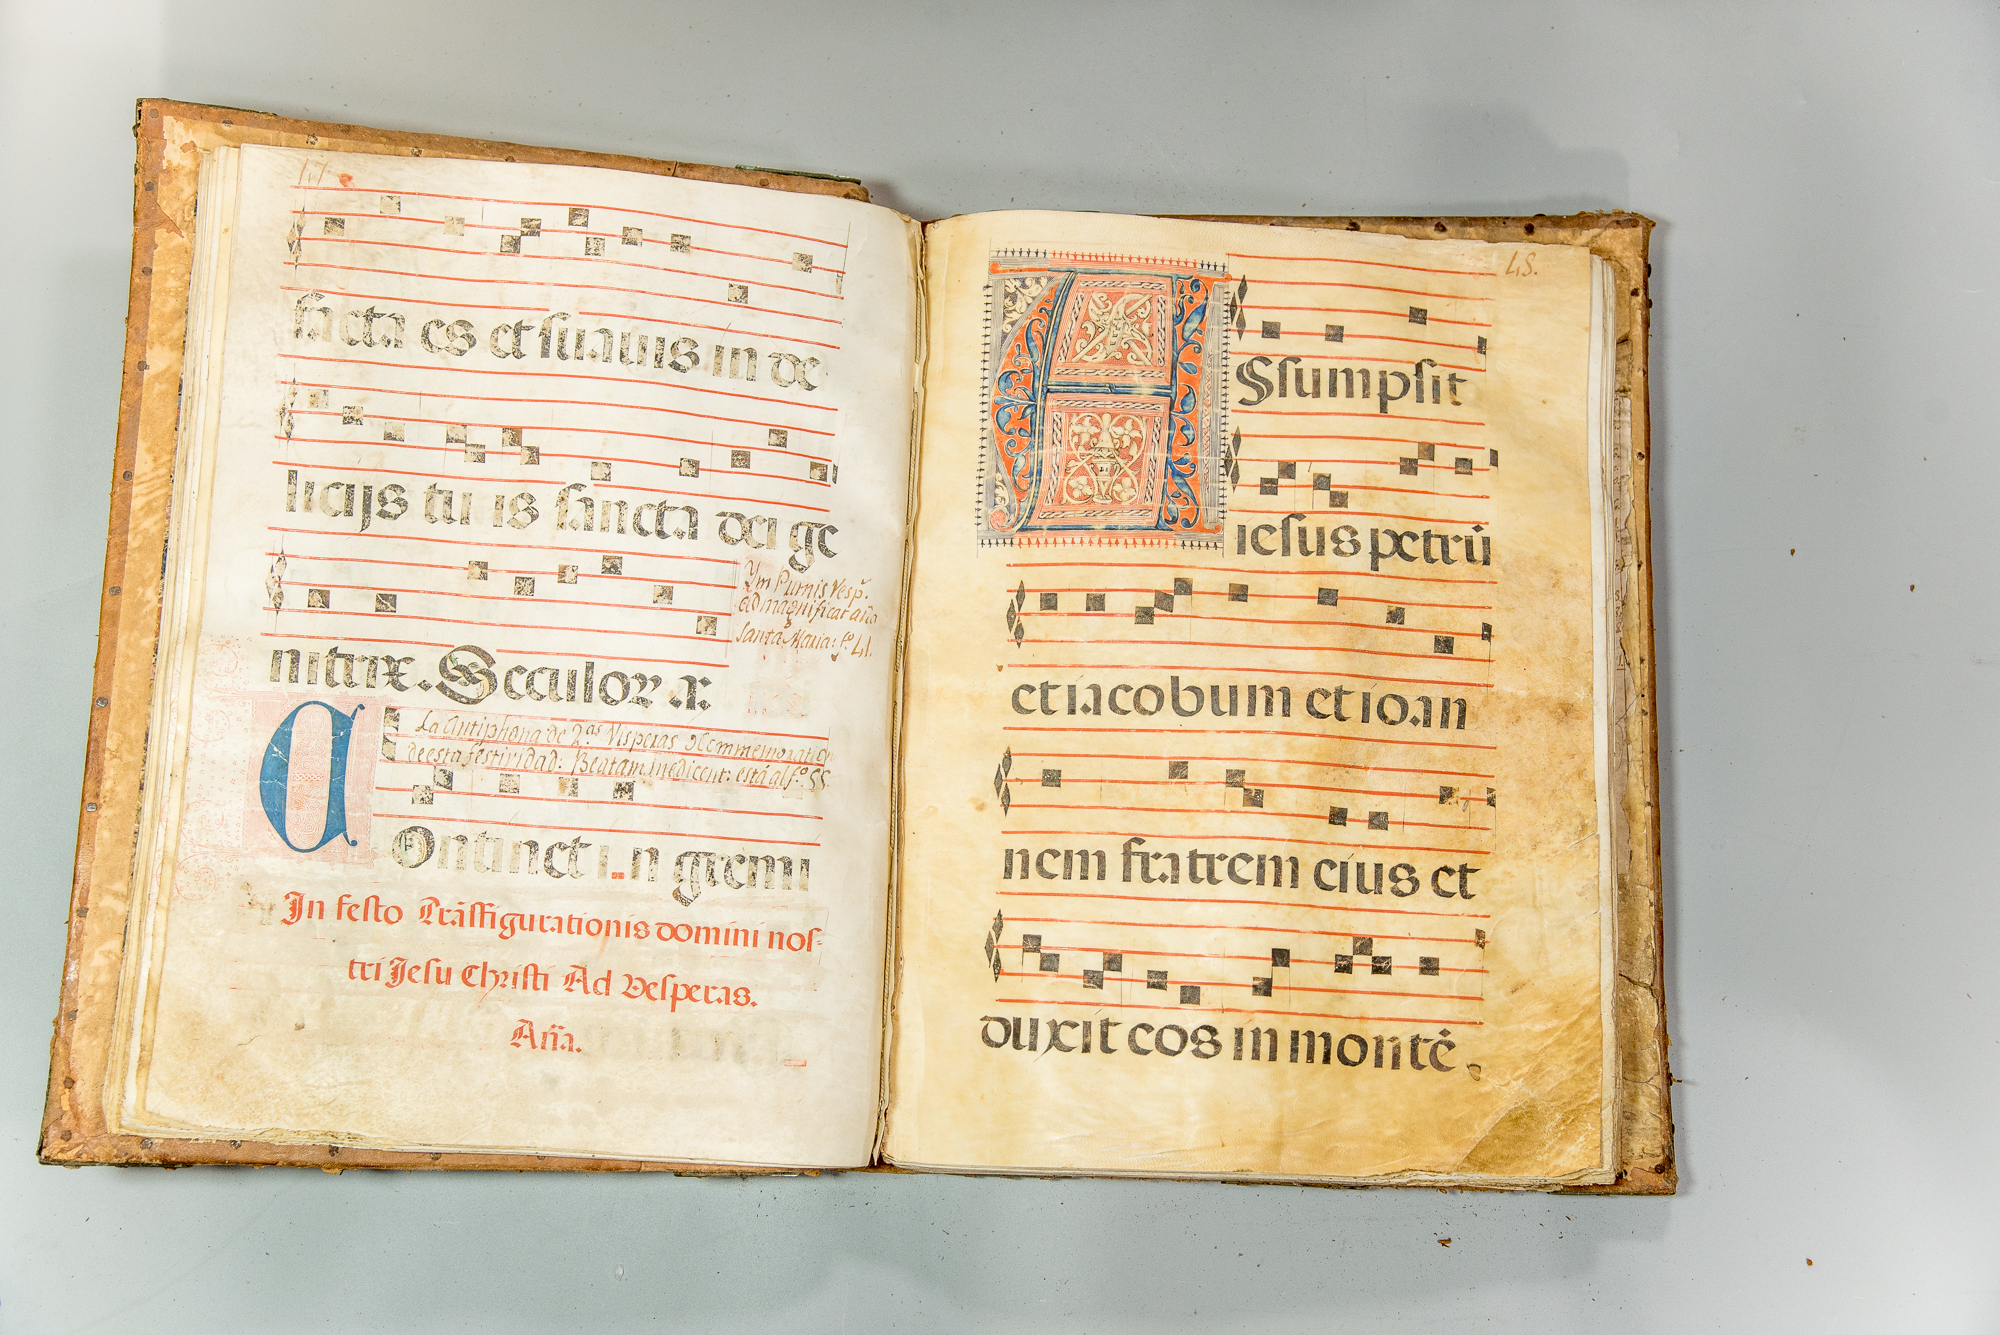 facta es et suauis in de
licijs tuis sancta dei ge
nitrix. Seculor a.
Ym Purnis Vesp.
ad magnificat aña
Santa Maria: fº 41.
La Antiphona de 2.as Visperas
de esta festividad: Beatam me dicent: está al fº 55
Ontinet in gremi
In festo Trãsfigurationis domini nos-
tri Jesu Christi Ad Vesperas.
Añа.
48.
ASsumpsit
iesus petrũ
et iacobum et ioan
nem fratrem eius et
duxit eos in montẽ